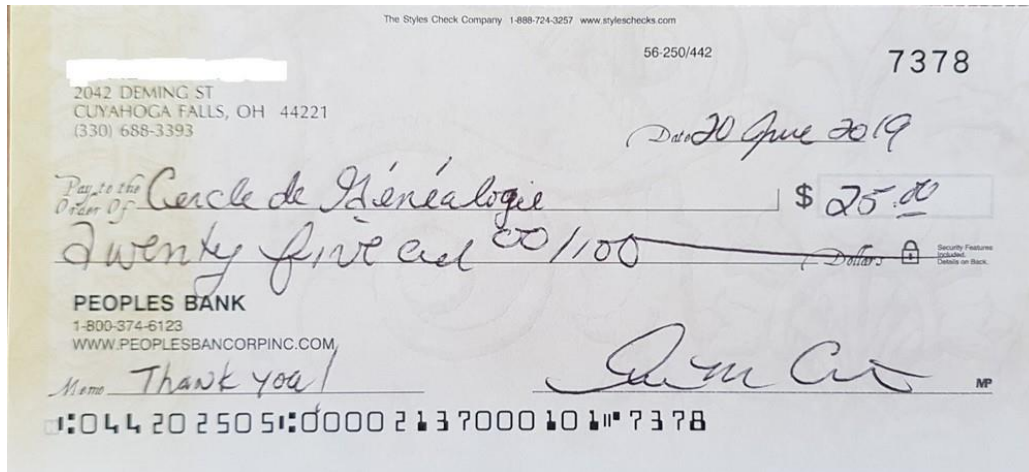 The Styles Check Company 1-888-724-3257 www.styleschecks.com
56-250/442
7378
2042 DEMING ST
CUYAHOGA FALLS, OH 44221
(330) 688-3393
Date 20 June 2019
Pay to the
Order Of Cercle de Généalogie $ 25.00
Twenty five and 00/100 Dollars
Security Features
Included.
Details on Back.
PEOPLES BANK
1-800-374-6123
WWW.PEOPLESBANCORPINC.COM
Memo Thank you!
MP
⑆044202505⑆0000213700010 1⑈7378